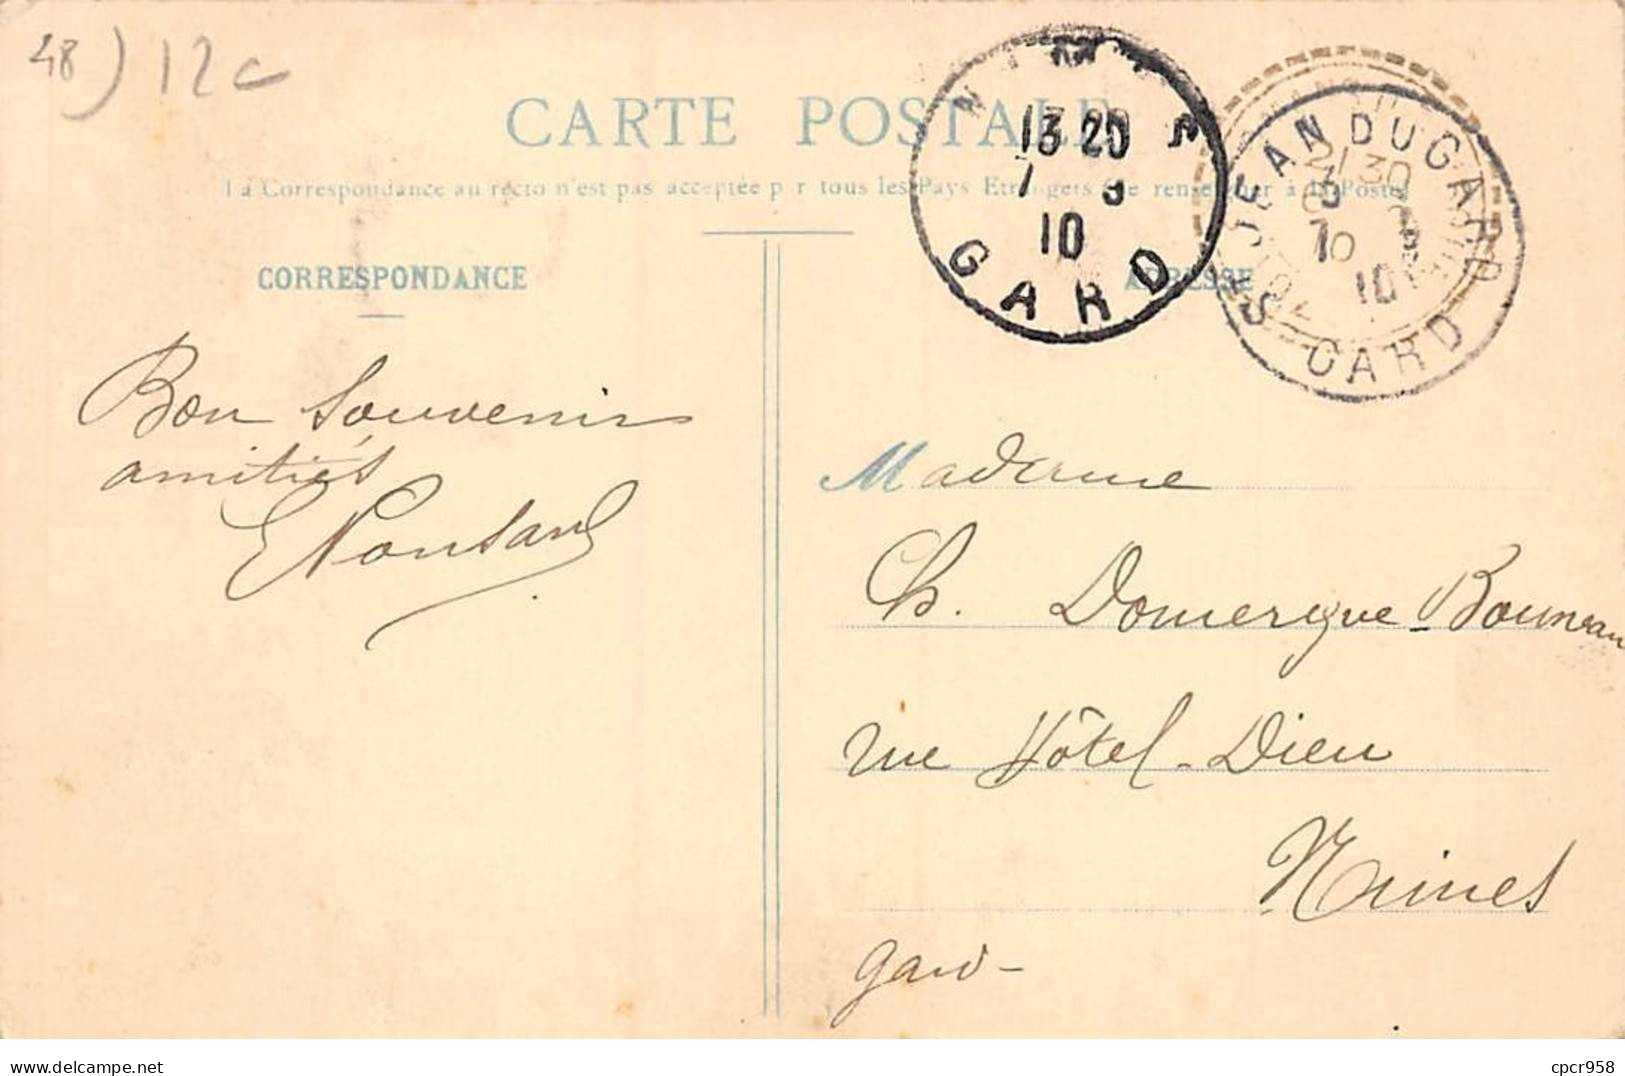 48) 12c
CARTE POSTALE
La Correspondance au recto n'est pas acceptée par tous les Pays Etrangers (Se renseigner à la Poste)
NIMES
13 20
7 9
10
GARD
ST JEAN DU GARD
21 30
10
GARD
CORRESPONDANCE
ADRESSE
Bon Souvenir
amitiés
Madame
Ch. Domergue-Bouneau
rue Hôtel-Dieu
Nimes
Gard-
www.delcampe.net
cpcr958